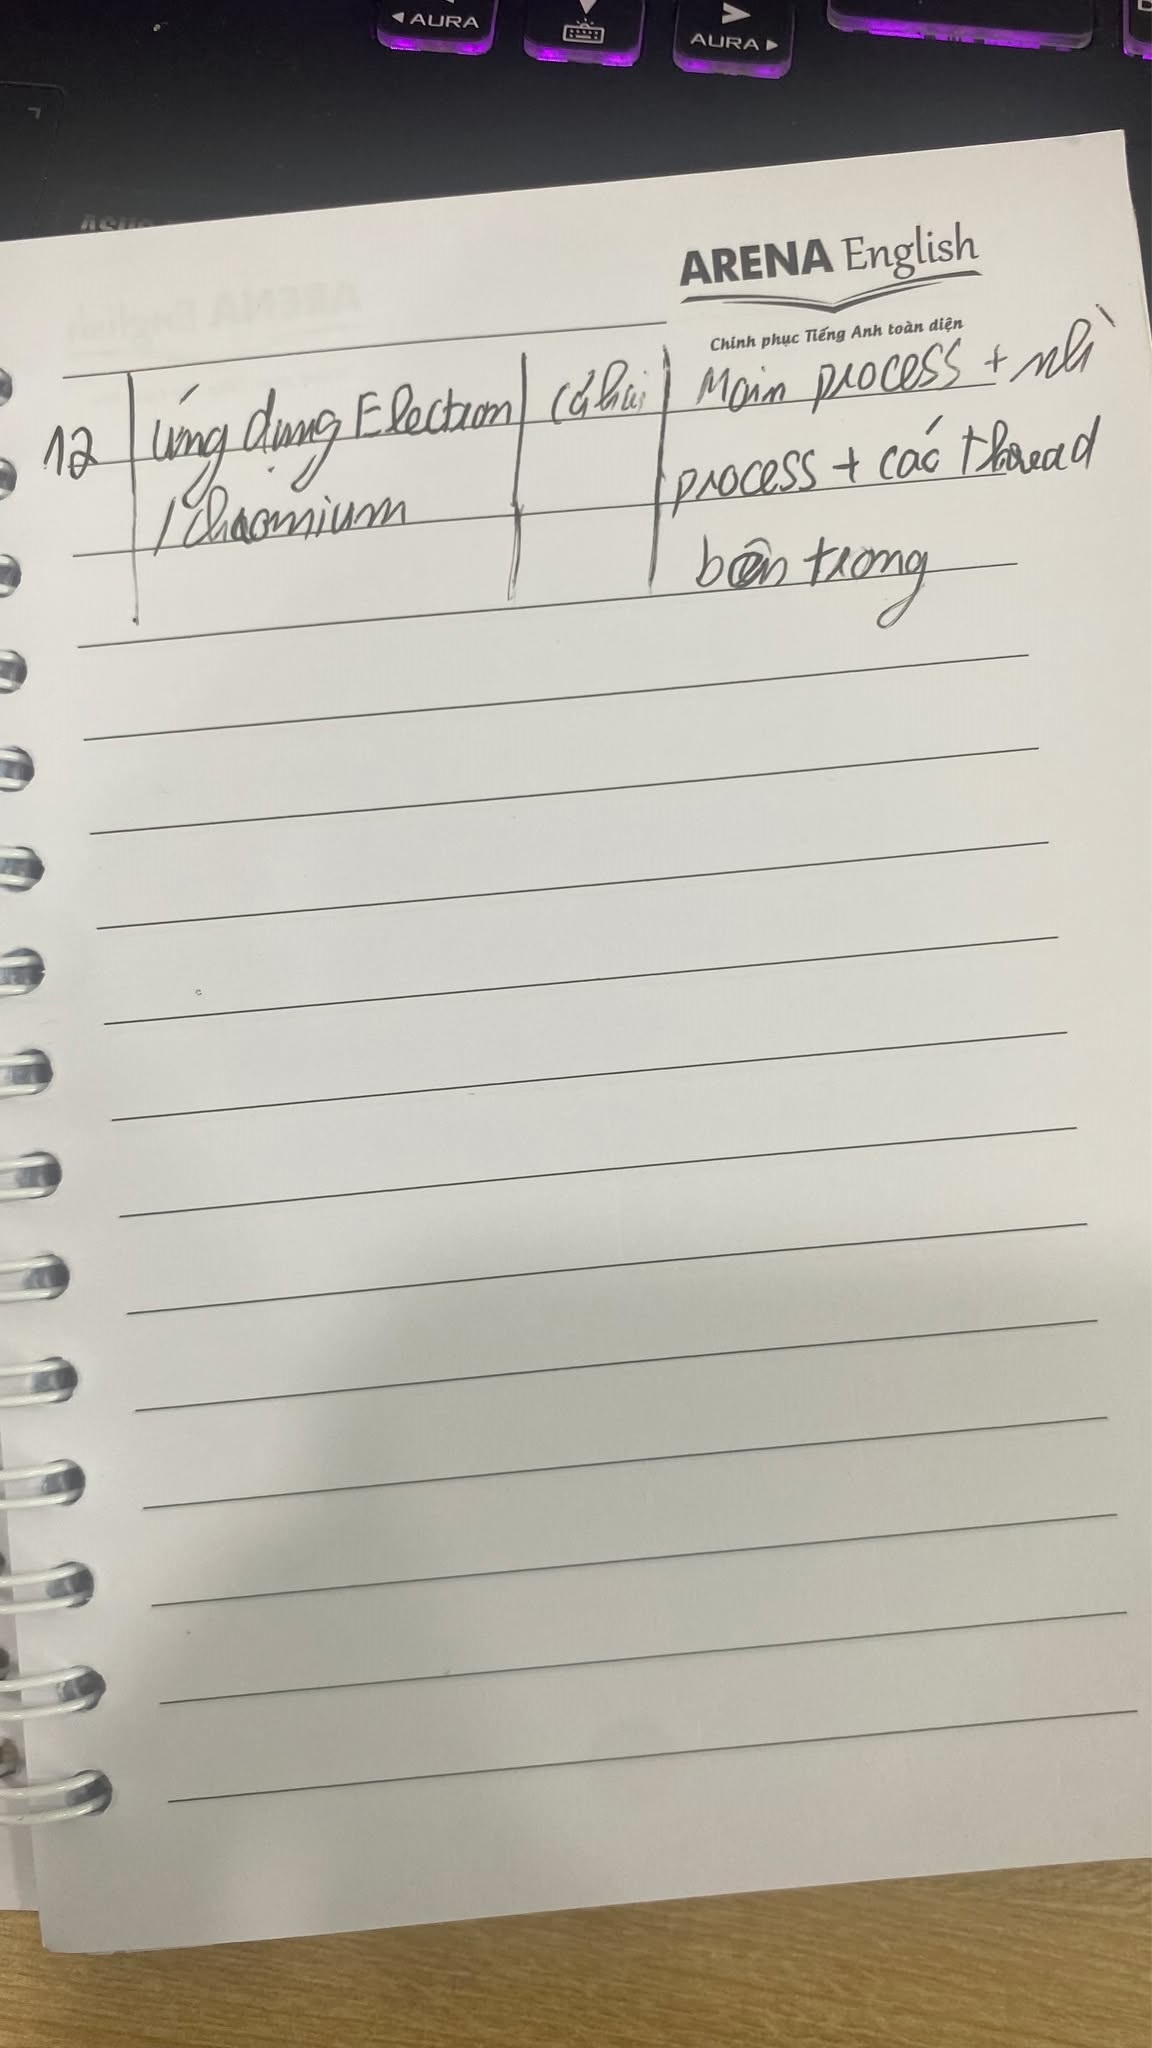 ◀ AURA
AURA ▶
ARENA English
Chinh phục Tiếng Anh toàn diện
12 | Ứng dụng Electron | Cả hai | Main process + nhiều
/ Chromium | process + các thread
bên trong